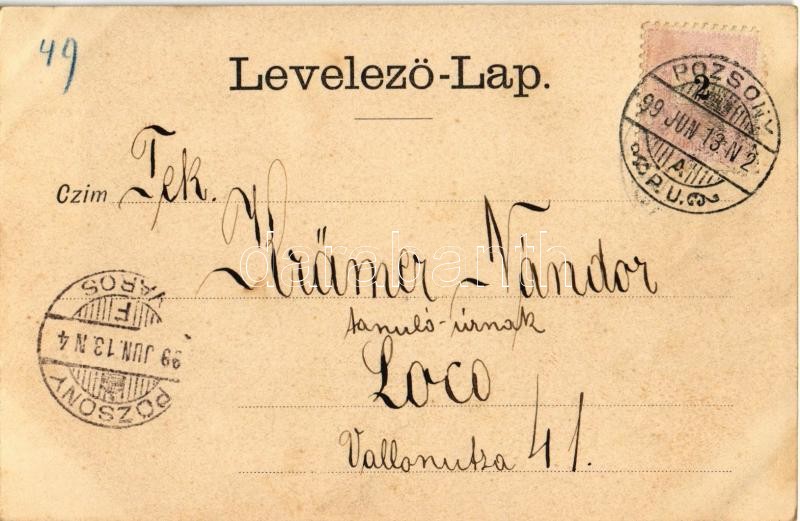 49
Levelezö-Lap.
2
POZSONY
99 JUN 13·N2
A
P.U.
Czim Tek.
Krämer Nándor
tanuló-úrnak
Loco
Vallonutsza 41.
POZSONY
99 JUN.13.N4
F
VÁROS
darabanth